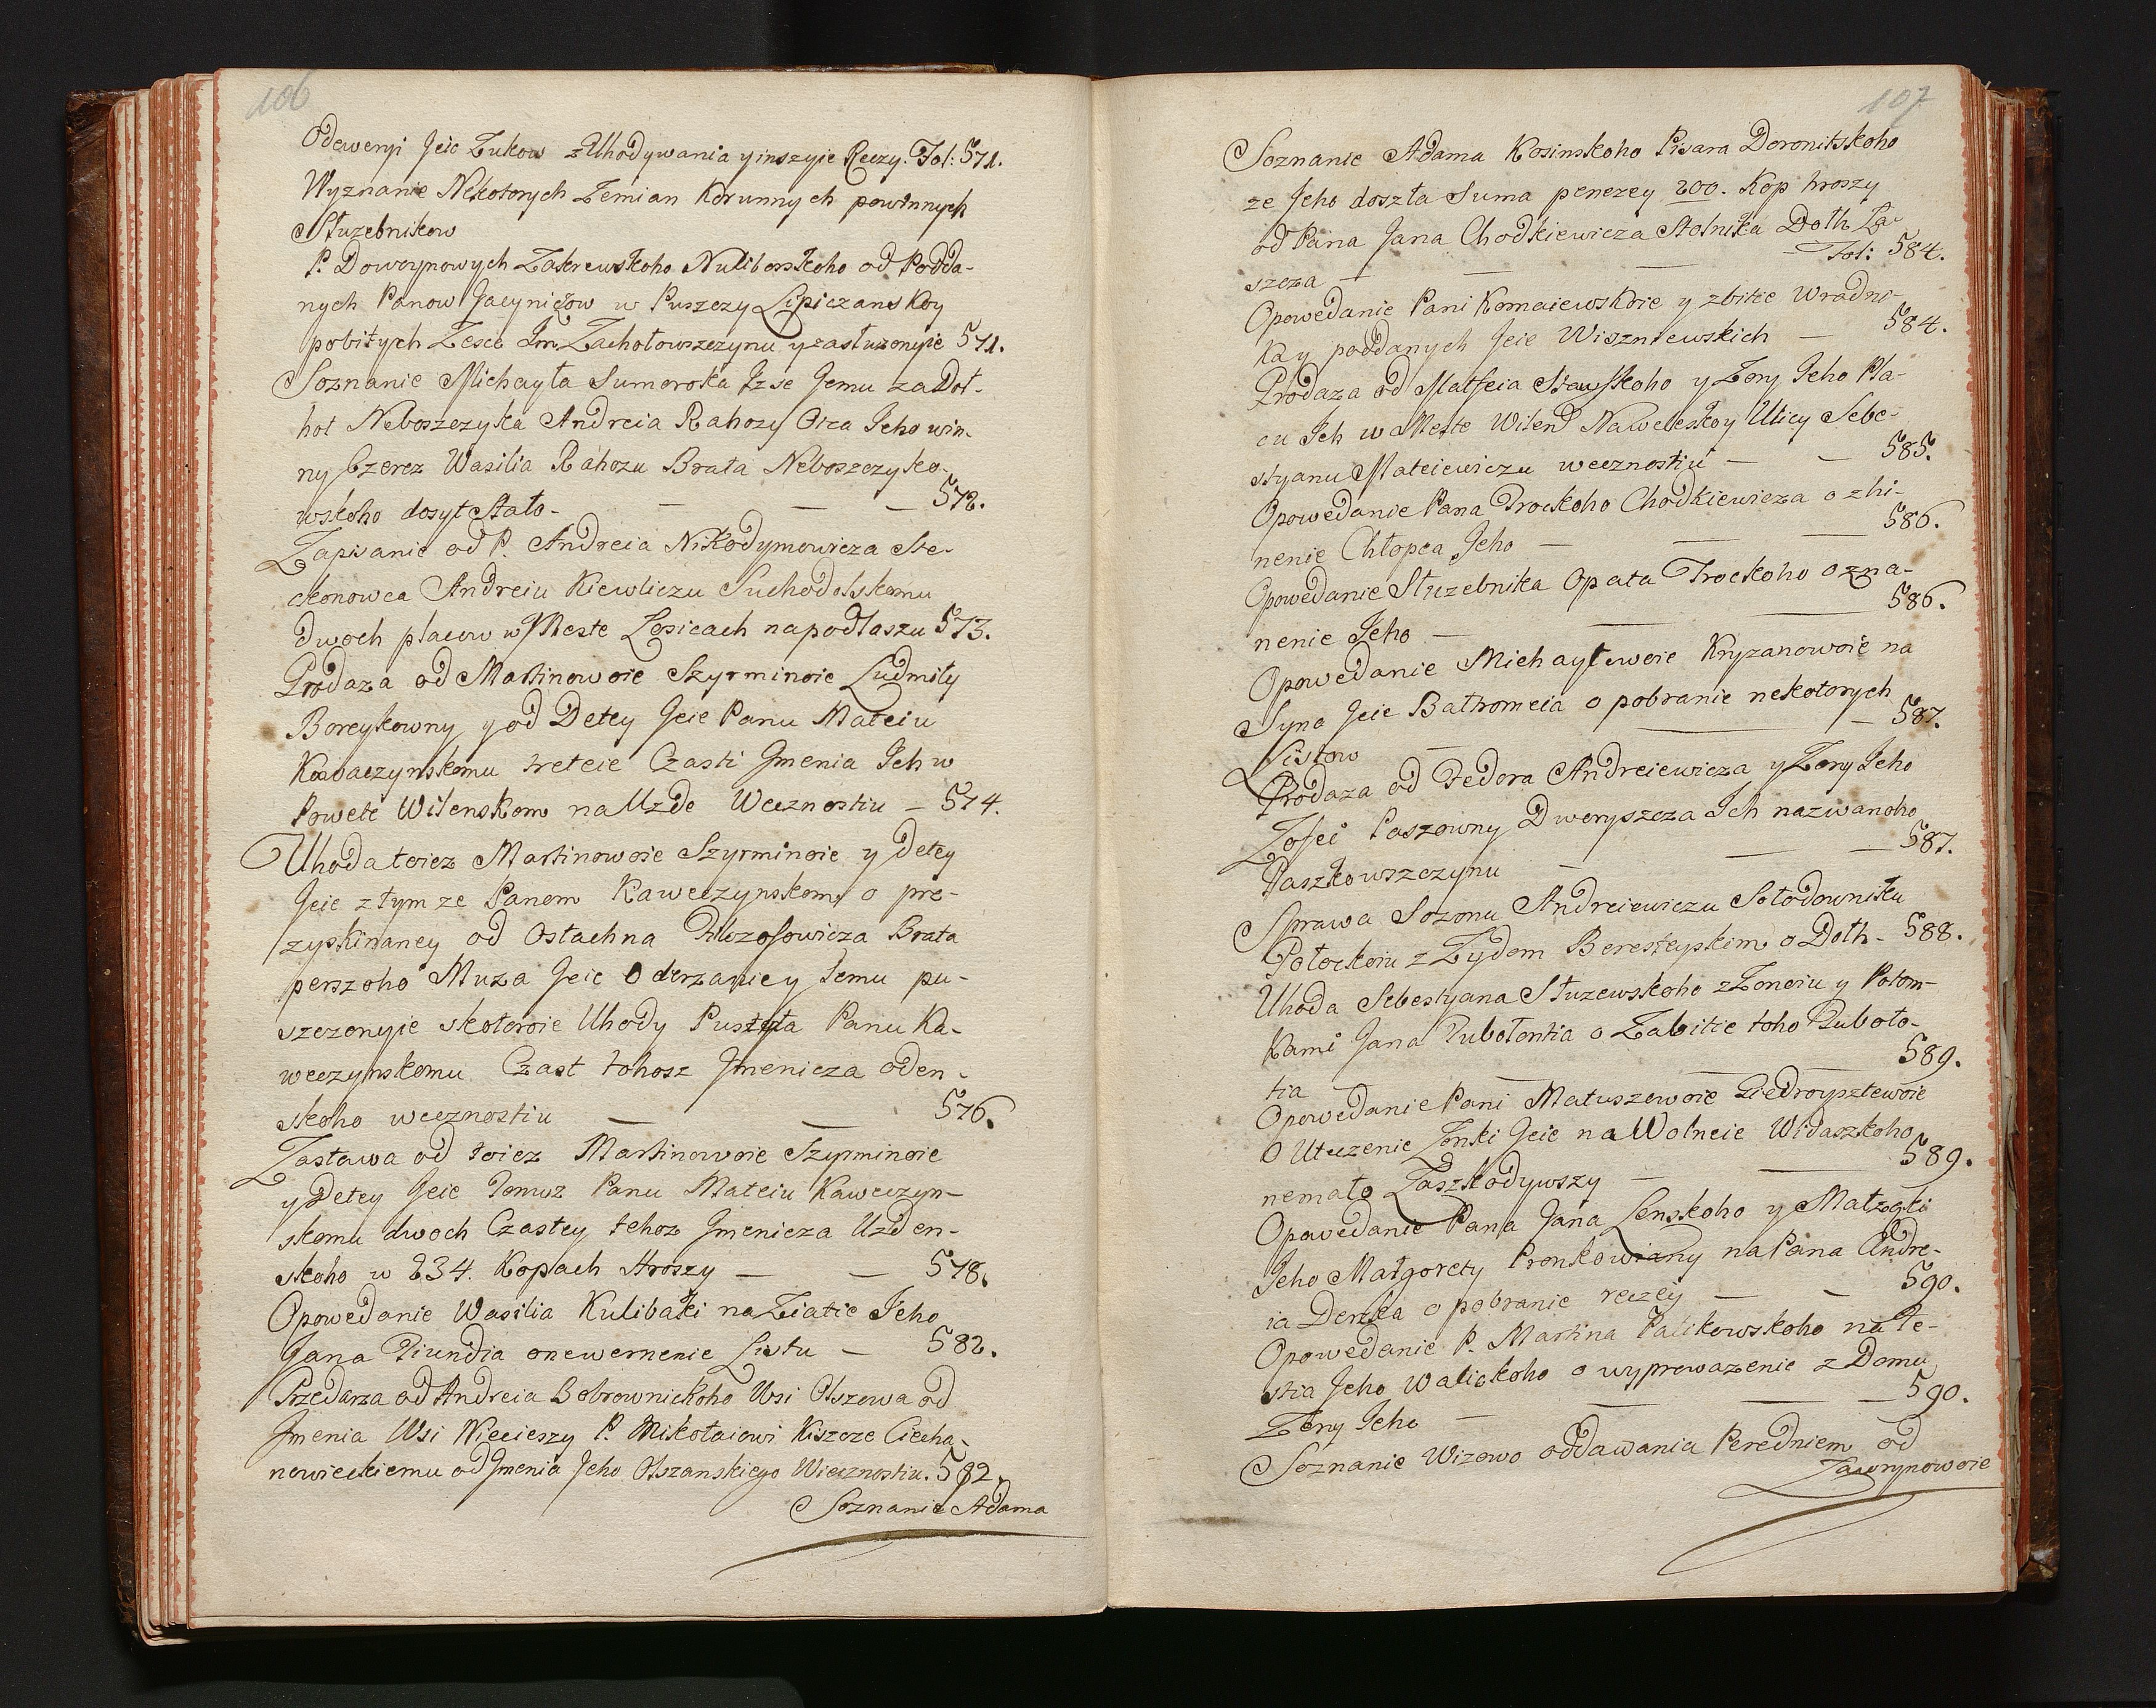 106
Odeweryi Jeie Zukow z Uhodywania y inszyie Reczy. Fol: 571.
Wyznanie Nekotorych Zemian Korunnych powinnych
Służebnikow
P. Doworynowych Zakrewskoho Nuliborskoho od Podda-
nych Panow Jacyniczow w Puszczy Lipiczanskoy
pobitych Zesco Im Zachołowszczynu y zasłuzonyie 571.
Soznanie Michayła Sumoroka Iz se Jemu za Doł-
hoł Neboszczyka Andreia Rahozy Otca Jeho win-
ny Czerez Wasilia Rahozu Brata Neboszczyko-
wskoho dosyt Stało - — — — 572.
Zapisanie od P. Andreia Nikodymowicza Ste-
ckonowca Andreiu Kiewliczu Suchodolskomu
dwoch placow w Meste Łosicach na podlaszu 573.
Prodaza od Martinowoie Szyrminoie Ludmiły
Boreykowny y od Detey Jeie Panu Mateiu
Kawaczynskomu treteie Czasti Jmenia Ich w
Powete Wilenskom na Uzde Wecznostiu — 574.
Uhoda toiez Martinowoie Szyrminoie y Detey
Jeie z tym ze Panom Kaweczynskom o pre-
zyskinaney od Ostachna Prozofowicza Brata
perszoho Muza Jeie Oderzanie y Jemu pu-
szczonyie skotoroie Uhody Pustyła Panu Ka-
weczynskomu Czast tohosz Jmenicza oden-
skoho wecznostiu — — 576.
Zastawa od toiez Martinowoie Szyrminoie
y Detey Jeie Tomuz Panu Mateiu Kaweczyn-
skomu dwoch Czastey tehoz Jmenicza Uzden-
skoho w 234. Kopach Hroszy — — 578.
Opowedanie Wasilia Kulibaki na Ziatie Jeho
Jana Piundia o newernenie Listu — 582.
Przedarza od Andreia Bobrownickoho Wsi Olszowa od
Jmenia Wsi Niecieszy P. Mikołaiowi Kiszcze Ciecha-
nowieckiemu od Jmenia Jeho Olszanskiego Wiecznostiu. 582.
Soznanie Adama
107
Soznanie Adama Kosinskoho Pisara Doronitskoho
ze Jeho doszła Suma penezey 200. Kop hroszy
od Pana Jana Chodkiewicza Stolnika Doth Za-
szcza — — — — Fol: 584.
Opowedanie Pani Komaiewskoie y zbitie Uradni-
kay poddanych Jeie Wiszniewskich — 584.
Prodaza od Matfeia Stawskoho y Zony Jeho Pla-
cu Ich w Meste Wilend Naweleskoy Ulicy Sebe-
styanu Mateiewiczu wecznostiu — — 585.
Opowedanie Pana Trockoho Chodkiewicza o zhi-
nenie Chłopca Jeho — — — 586.
Opowedanie Służebnika Opata Trockoho o zna-
nenie Jeho — — — 586.
Opowedanie Michayłowoie Kryzanowoie na
Syna Jeie Bałtromeia o pobranie nekotorych
Listow — — — 587.
Prodaza od Fedora Andreiewicza y Zony Jeho
Zofei Paszowny Dworyszcza Ich nazwanoho
Paszkowszczynu — — — 587.
Sprawa Sozonu Andreiewiczu Sołodowniku
Połockoiu z Zydom Beresteyskim o Doth - 588.
Uhoda Sebestyana Słuzewskoho z Zonoiu y Potom-
kami Jana Pubołontia o Zabitie toho Puboło-
tia — — — — 589.
Opowedanie Pani Matuszewoie Giedroysztewoie
O Uteczenie Zonki Jeie na Wolneie Widaszkoho
nemało Zaszkodywszy — — 589.
Opowedanie Pana Jana Lenskoho y Małzonki
Jeho Małgorety Pronkowiany na Pana Andre-
ia Denska o pobranie reczey — — 590.
Opowedanie P. Martina Palikowskoho na Te-
stia Jeho Walickoho o wyprowazenie z Domu
Zony Jeho — — — — 590.
Soznanie Wizowo oddawania Peredniem od
Zaworynowoie